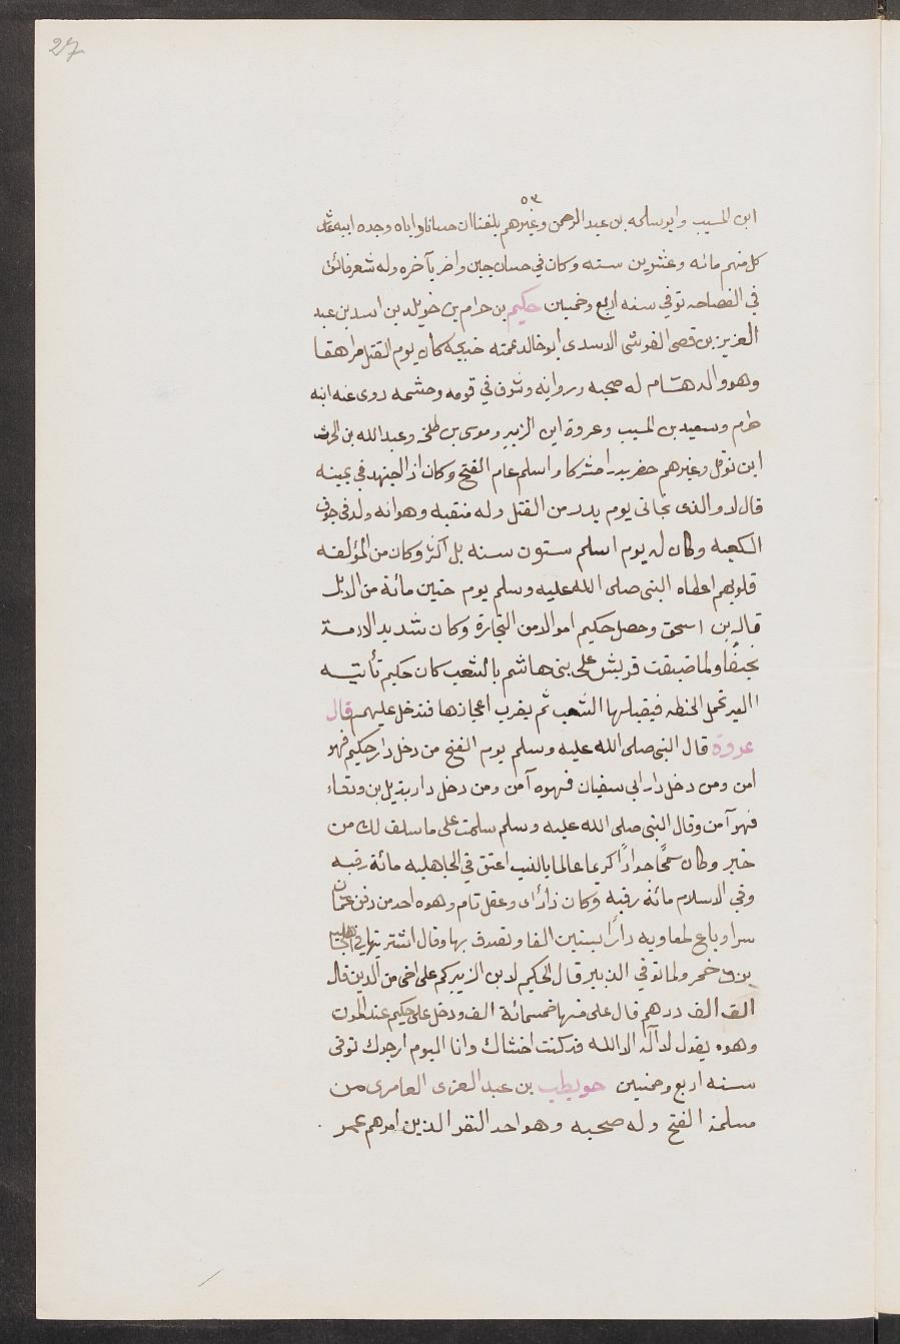 27
٥٣
ابن المسيب وابو سلمه بن عبد الرحمن وغيرهم بلغنا ان حسانا واباه وجده ابيه عاش
كل منهم مائه وعشرين سنه وكان في حسان جبن واضر بآخره وله شعر فائق
في الفصاحه توفي سنه اربع وخمسين حكيم بن حزام بن خويلد بن اسد بن عبد
العزيز بن قصى القرشى الاسدى ابو خالد عمته خديجه كان يوم القتل مراهقا
وهو والد هشام له صحبه وروايه وشرف في قومه وحشمه روى عنه ابنه
حزام وسعيد بن المسيب وعروة ابن الزبير وموسى بن طلحه وعبد الله بن الحرث
ابن نوفل وغيرهم حضر بدرا مشركا واسلم عام الفتح وكان اذا اجتهد في يمينه
قال لا والذى نجانى يوم بدر من القتل وله منقبه وهو انه ولد في جوف
الكعبه وكان له يوم اسلم ستون سنه بل اكثر وكان من المؤلفه
قلوبهم اعطاه النبى صلى الله عليه وسلم يوم حنين مائة من الابل
قاله بن اسحق وحصل حكيم اموالا من التجارة وكان شديد الادمة
نحيفا ولما ضيقت قريش على بنى هاشم بالشعب كان حكيم تأتيه
العير تحمل الحنطه فيقبلها الشعب ثم يضرب اعجازها فتدخل عليهم قال
عروة قال النبى صلى الله عليه وسلم يوم الفتح من دخل دار حكيم فهو
امن ومن دخل دار ابى سفيان فهوه آمن ومن دخل دار بديل بن ورقاء
فهو آمن وقال النبى صلى الله عليه وسلم سلمت على ما سلف لك من
خير وكان سمحًا جوادًا كريما عالما بالنسب اعتق في الجاهليه مائة رقبه
وفي الاسلام مائة رقبه وكان ذا رأى وعقل تام وهوه احد من دفن عثمان
سرا وباع لمعاويه دارًا بستين الفا وتصدق بها وقال اشتريتها في الجاهليه
بزق خمر ولما توفي الزبير قال الحكيم لابن الزبير كم على اخى من الدين قال
الف الف درهم قال على منها خمسمائة الف ودخل على حكيم عند الموت
وهوه يقول لا آله الا الله قد كنت اخشاك وانا اليوم ارجوك توفى
سنه اربع وخمسين حويطب بن عبد العزى العامرى من
مسلمة الفتح وله صحبه وهو احد النفر الذين امرهم عمر